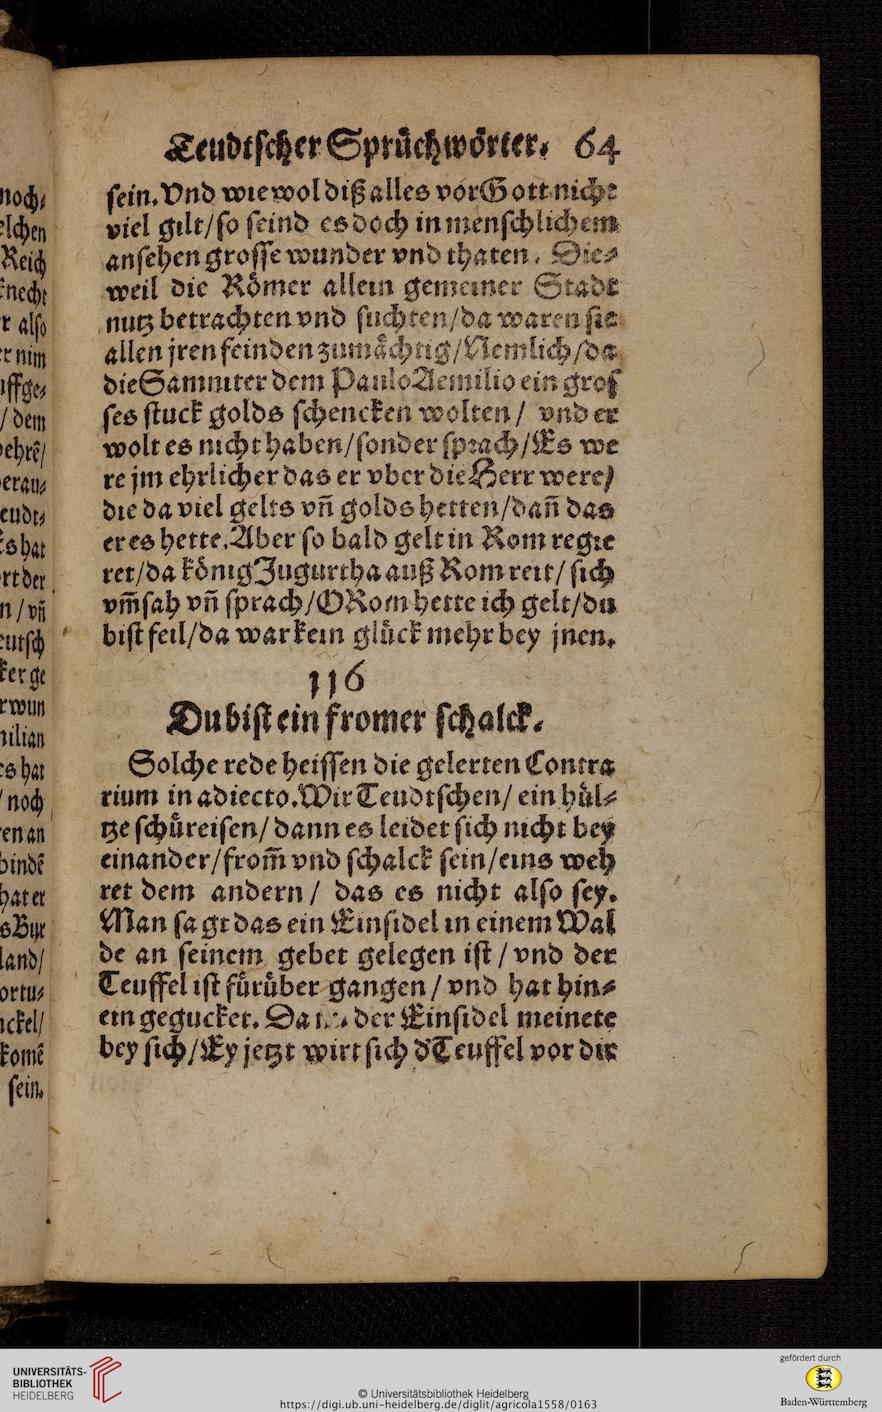 Teudtscher Sprüchwörter. 64
sein. Vnd wiewol diß alles vor Gott nicht
viel gilt/ so seind es doch in menschlichem
ansehen grosse wunder vnd thaten. Die⸗
weil die Römer allein gemeiner Stadt
nutz betrachten vnd suchten/ da waren sie
allen jren feinden zumächtig/ Nemlich/ da
die Samniter dem Paulo Aemilio ein gros
ses stuck golds schencken wolten/ vnd er
wolt es nicht haben/ sonder sprach/ Es we
re jm ehrlicher das er vber die Herr were/
die da viel gelts vñ golds hetten/ dañ das
er es hette. Aber so bald gelt in Rom regie
ret/ da könig Jugurtha auß Rom reit/ sich
vm̃sah vñ sprach/ O Rom hette ich gelt/ du
bist feil/ da war kein glück mehr bey jnen.
116
Du bist ein fromer schalck.
Solche rede heissen die gelerten Contra
rium in adiecto. Wir Teudtschen/ ein hül⸗
tze schüreisen/ dann es leidet sich nicht bey
einander/ from̃ vnd schalck sein/ eins weh
ret dem andern/ das es nicht also sey.
Man sagt das ein Einsidel in einem Wal
de an seinem gebet gelegen ist/ vnd der
Teuffel ist fürüber gangen/ vnd hat hin⸗
ein gegucket. Da der Einsidel meinete
bey sich/ Ey jetzt wirt sich d' Teuffel vor dir
noch⸗
elchen
Reich
knecht
r also
er nim
uffge⸗
/ dem
ehrẽ/
erau⸗
eudt⸗
es hat
rt der
n/ vñ
eutsch
ker ge
r wun
milian
es hat
/ noch
en an
bindẽ
hat er
s Bur
land/
ortu⸗
nckel/
komẽ
sein.
UNIVERSITÄTS-
BIBLIOTHEK
HEIDELBERG
© Universitätsbibliothek Heidelberg
https://digi.ub.uni-heidelberg.de/diglit/agricola1558/0163
gefördert durch
Baden-Württemberg